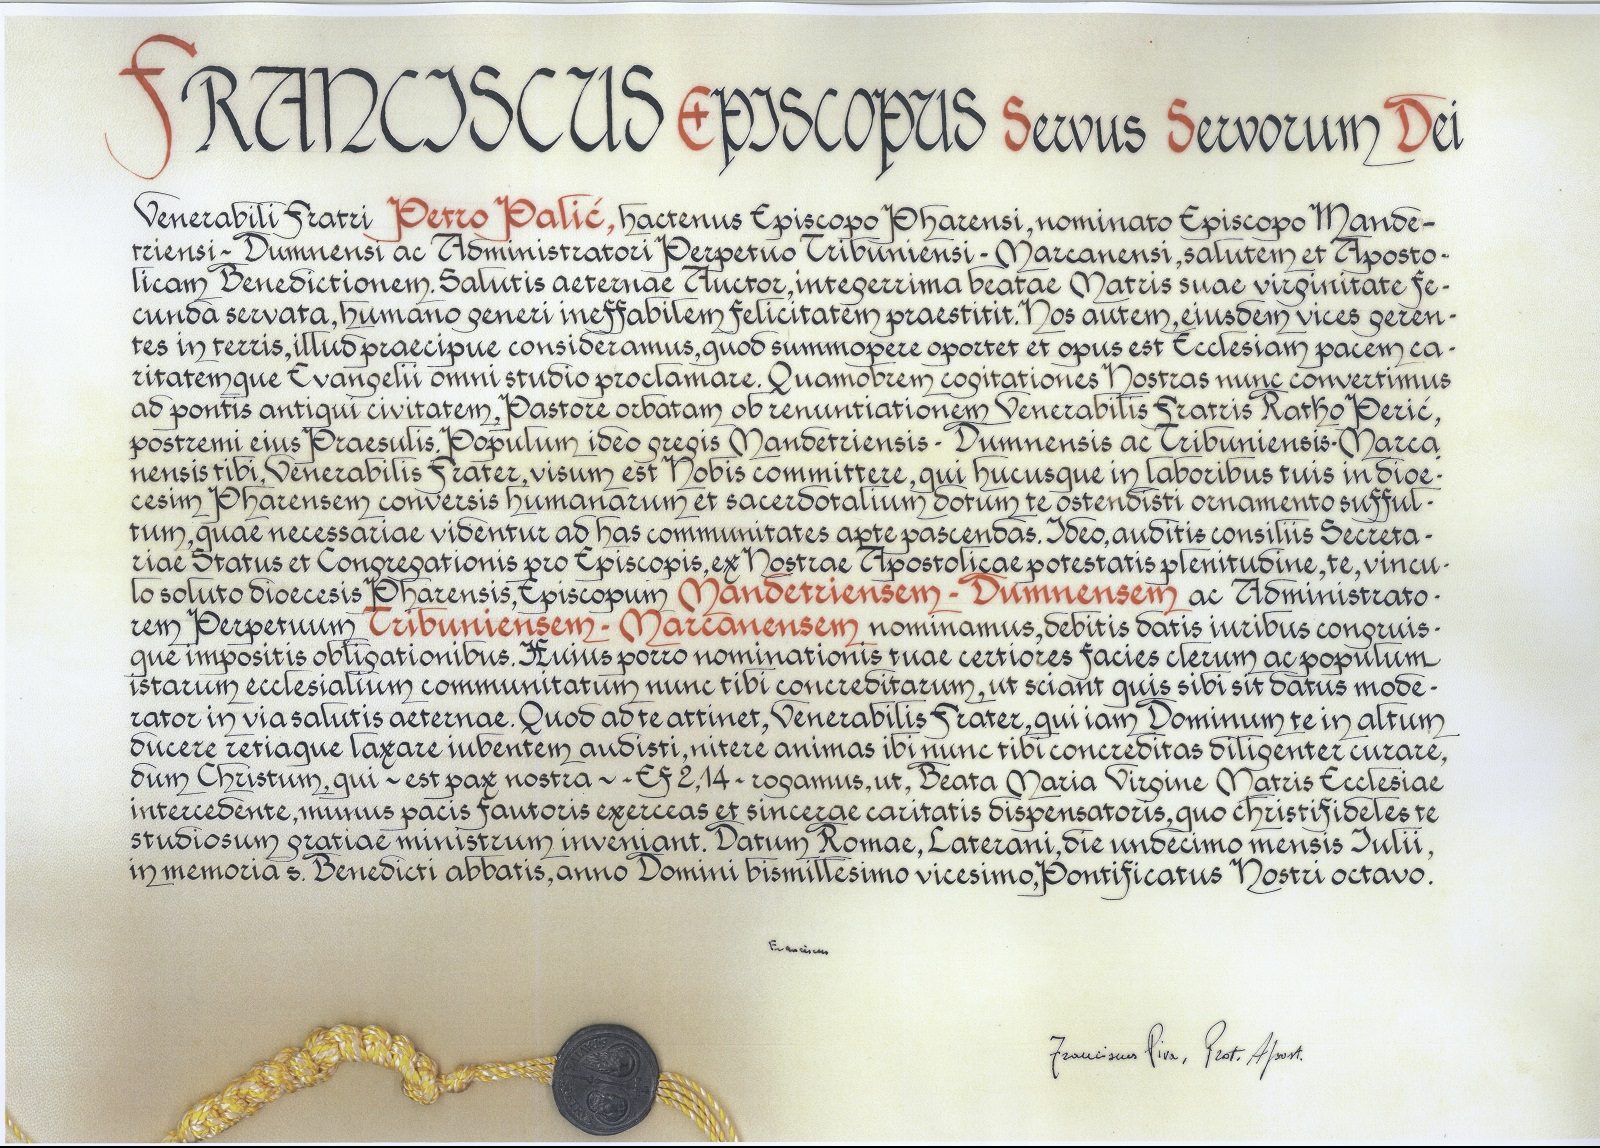 Franciscus Episcopus Servus Servorum Dei
Venerabili Fratri Petro Palić, hactenus Episcopo Pharensi, nominato Episcopo Mande-
triensi - Dumnensi ac Administratori Perpetuo Tribuniensi - Marcanensi, salutem et Aposto-
licam Benedictionem. Salutis aeternae Auctor, integerrima beatae Matris suae virginitate fe-
cunda servata, humano generi ineffabilem felicitatem praestitit. Nos autem, eiusdem vices geren-
tes in terris, illud praecipue consideramus, quod summopere oportet et opus est Ecclesiam pacem ca-
ritatemque Evangelii omni studio proclamare. Quamobrem cogitationes Nostras nunc convertimus
ad pontis antiqui civitatem, Pastore orbatam ob renuntiationem Venerabilis Fratris Ratko Perić,
postremi eius Praesulis. Populum ideo gregis Mandetriensis - Dumnensis ac Tribuniensis-Marca
nensis tibi, Venerabilis Frater, visum est Nobis committere, qui hucusque in laboribus tuis in dioe-
cesim Pharensem conversis humanarum et sacerdotalium dotum te ostendisti ornamento sufful-
tum, quae necessariae videntur ad has communitates apte pascendas. Ideo, auditis consiliis Secreta-
riae Status et Congregationis pro Episcopis, ex Nostrae Apostolicae potestatis plenitudine, te, vincu-
lo soluto dioecesis Pharensis, Episcopum Mandetriensem - Dumnensem ac Administrato-
rem Perpetuum Tribuniensem - Marcanensem nominamus, debitis datis iuribus congruis-
que impositis obligationibus. Huius porro nominationis tuae certiores facies clerum ac populum
istarum ecclesialium communitatum nunc tibi concreditarum, ut sciant quis sibi sit datus mode-
rator in via salutis aeternae. Quod ad te attinet, Venerabilis Frater, qui iam Dominum te in altum
ducere retiaque laxare iubentem audisti, nitere animas ibi nunc tibi concreditas diligenter curare,
dum Christum, qui ~ est pax nostra ~ - Ef 2,14 - rogamus, ut, Beata Maria Virgine Matris Ecclesiae
intercedente, munus pacis fautoris exerceas et sincerae caritatis dispensatoris, quo christifideles te
studiosum gratiae ministrum inveniant. Datum Romae, Laterani, die undecimo mensis Iulii,
in memoria s. Benedicti abbatis, anno Domini bismillesimo vicesimo, Pontificatus Nostri octavo.
Franciscus
Franciscus Piva, Prot. Apost.